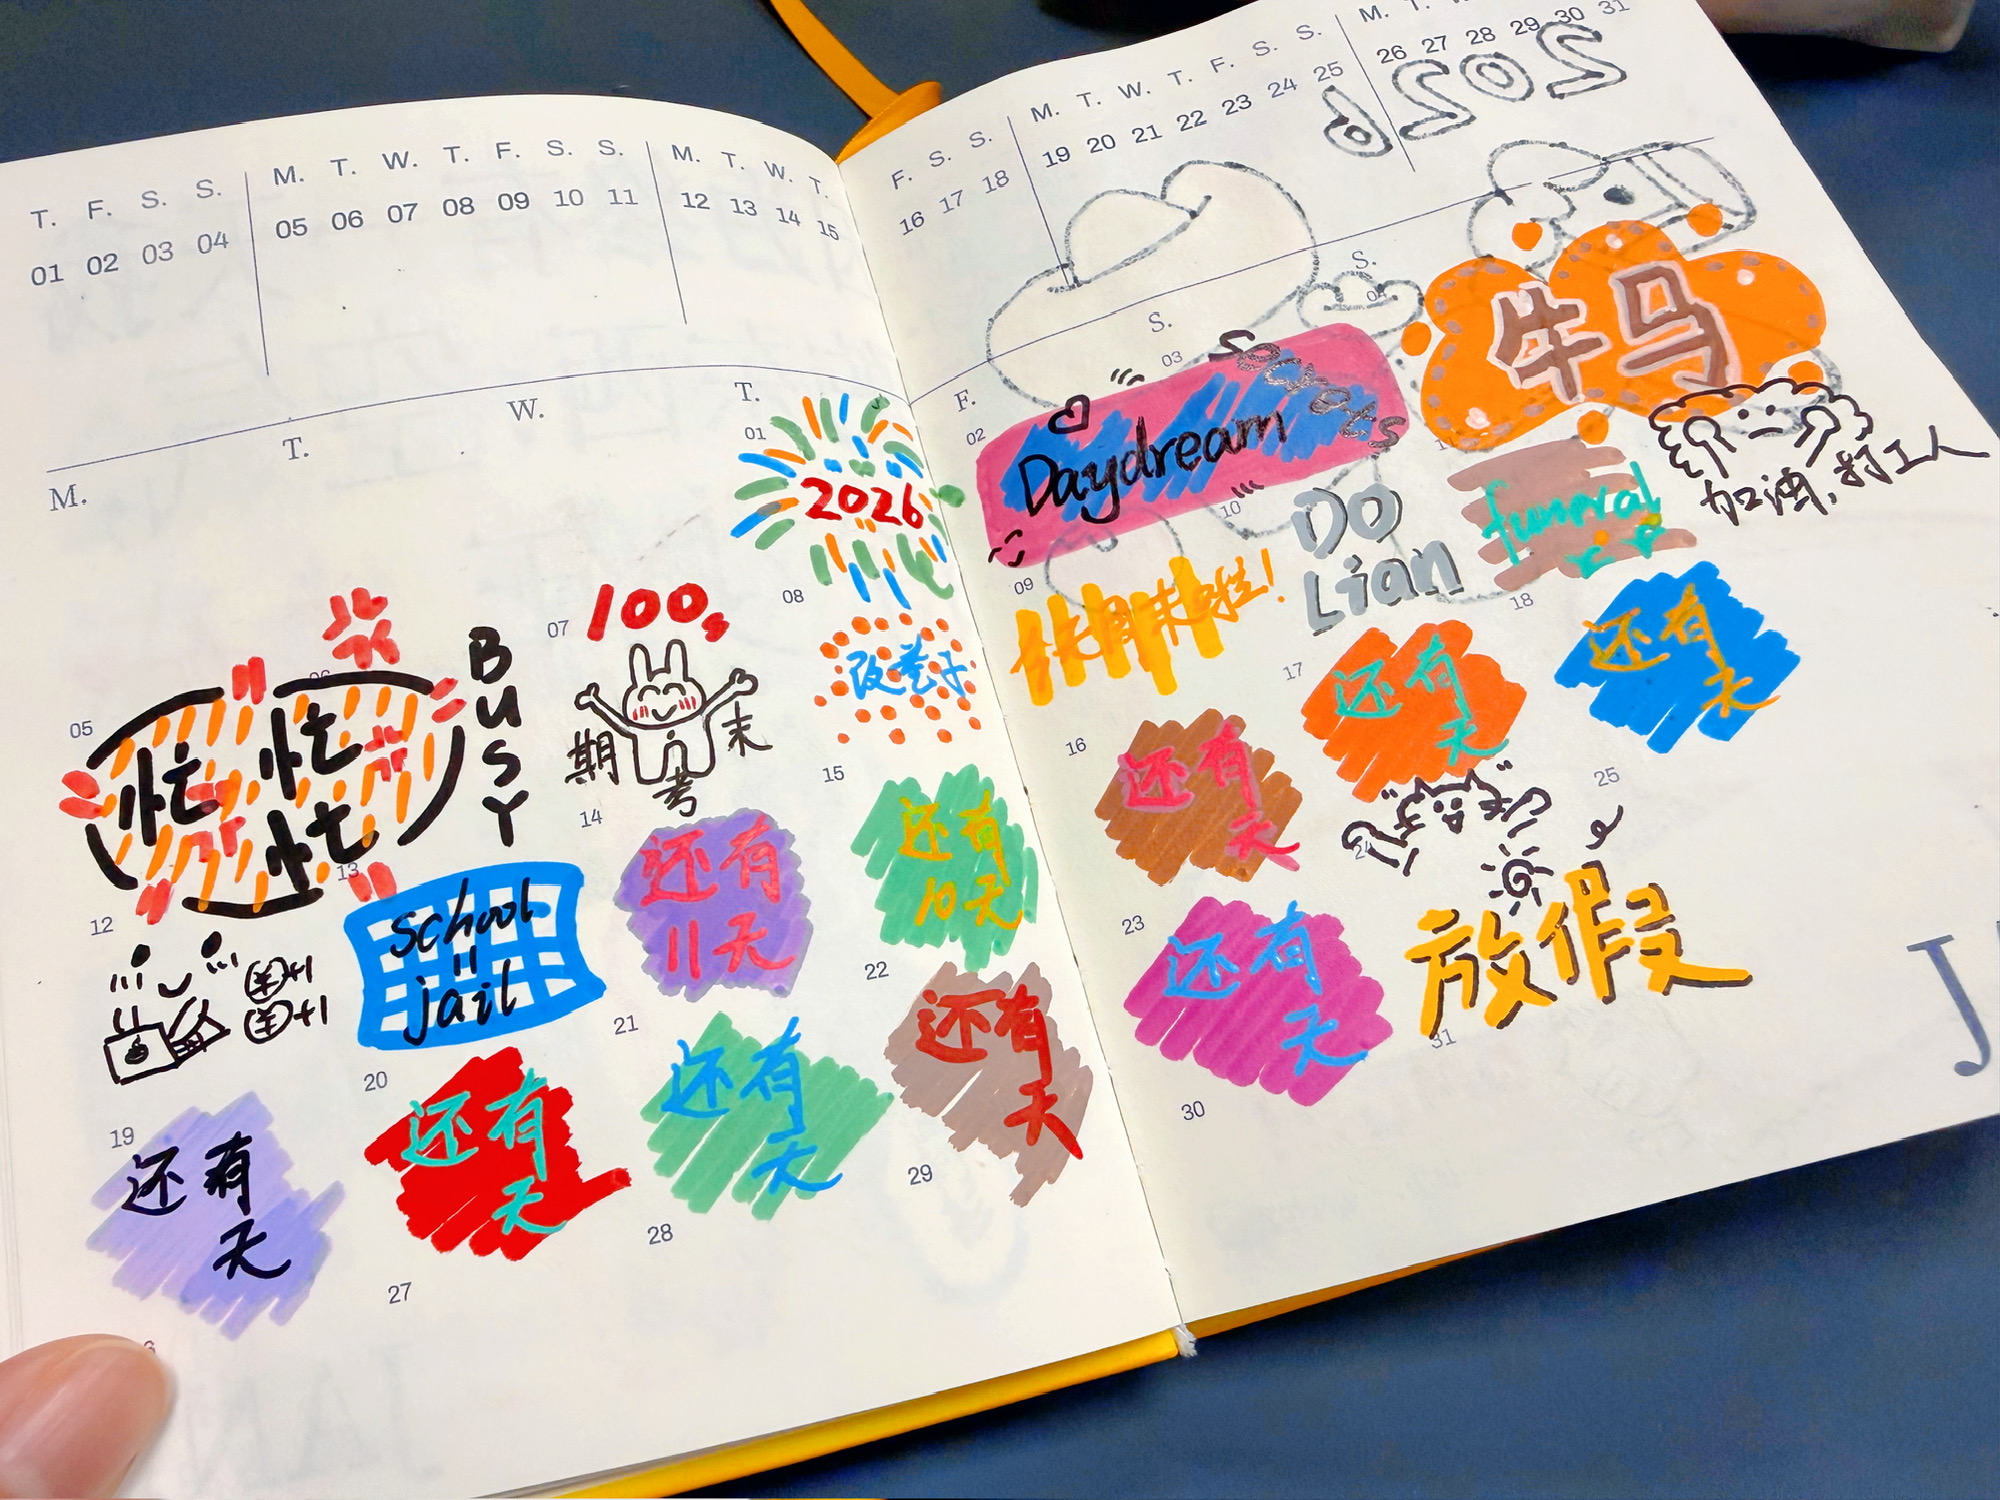 T. F. S. S.
01 02 03 04
M. T. W. T. F. S. S.
05 06 07 08 09 10 11
M. T. W. T.
12 13 14 15
F. S. S.
16 17 18
M. T. W. T. F. S. S.
19 20 21 22 23 24 25
M. T.
26 27 28 29 30 31
M.
T.
W.
T.
F.
S.
S.
01
2026
02
Daydream
03
04
牛马
加油,打工人
05
忙忙
忙
06
BUSY
07
100s
期末
考
08
改卷子
09
周末啦!
10
DO
Lian
funeral
12
+1
+1
13
school
=
jail
14
还有
11天
15
还有
10天
16
还有
天
17
还有
天
18
还有
天
19
还有
天
20
还有
天
21
还有
天
22
还有
天
23
还有
天
24
放假
25
27
28
29
30
31
J